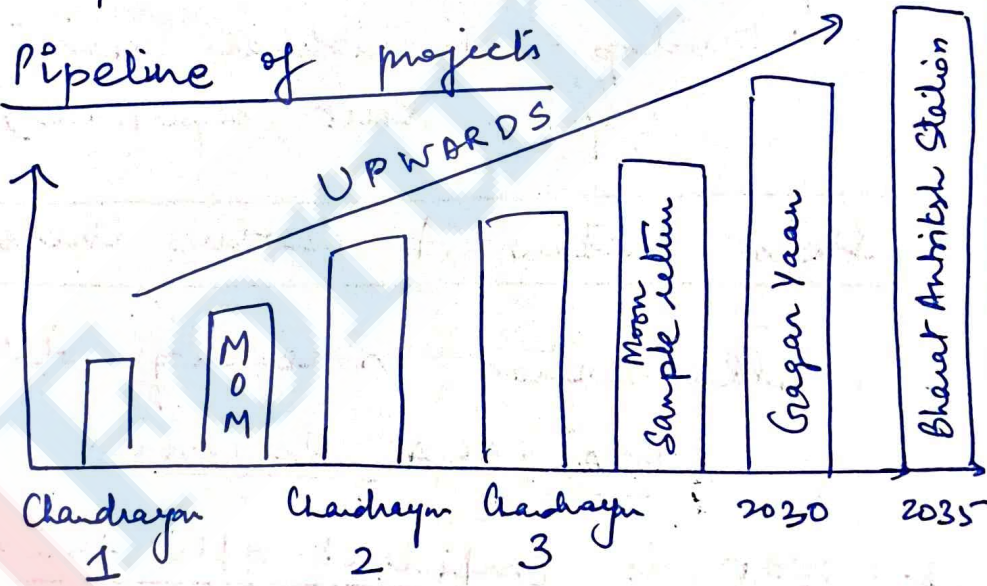 Pipeline of projects
UPWARDS
MOM
Moon
Sample return
Gagan Yaan
Bharat Antriksh Station
Chandrayan
1
Chandrayan
2
Chandrayan
3
2030
2035
Forum